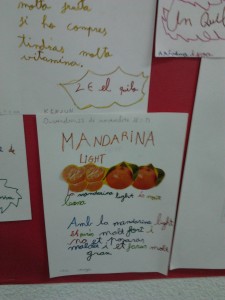 molta fruita
si ho compres
tindras molta
vitamina.
2 € el quilo
Un Quilo
MANDARINA
LIGHT
la mandarina light és molt
bona
Amb la mandarina light
seràs molt fort i
no et posaràs
malalt i et faràs molt
gran